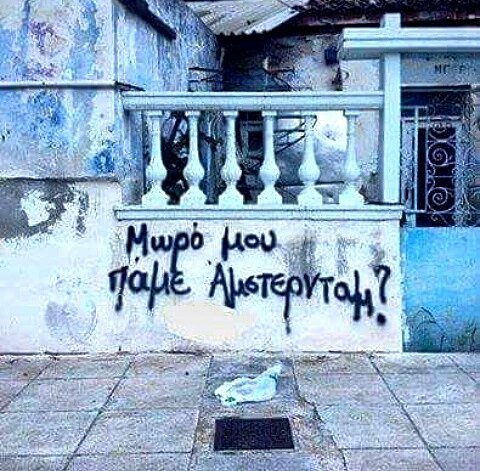 Μωρό μου
πάμε Άμστερνταμ?